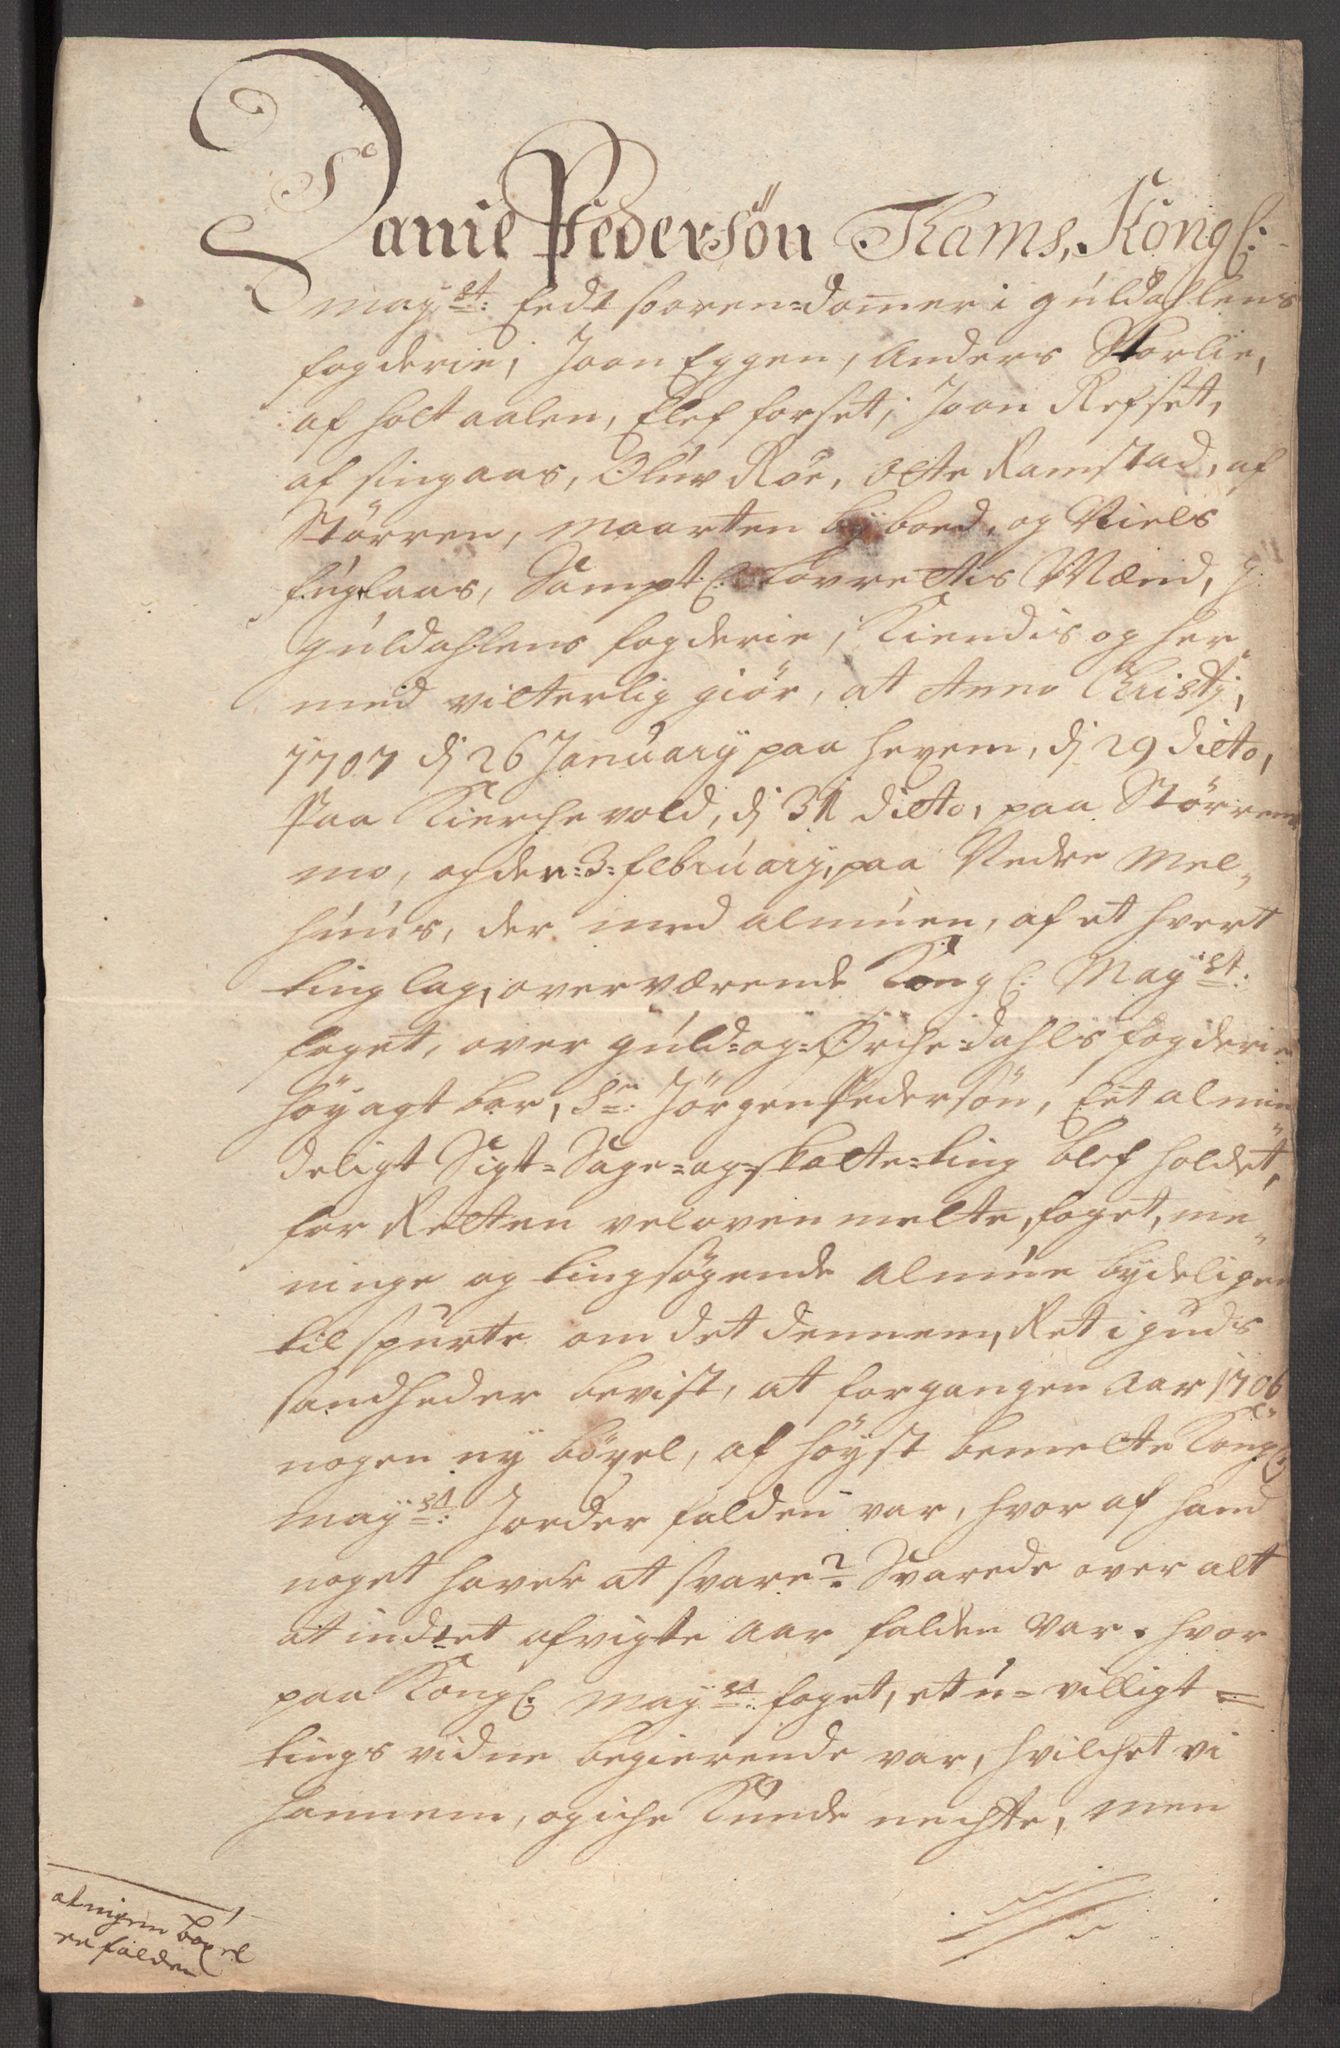 Daniel Pedersön Kams, Kongl:
may:st: Eedt sooren=domer i guldallens
fogderie, Joon Eggen, Anders Storlie,
af holtaalen, Elef forset, Joon Refset,
af singaas, Oluv Röe, Otte Ramstad, af
Störren, maarten byboed, og Niels
fuglaas, Sampt: Lovrettis Mænd, j
guldahlens fogderie, Kiendis og her„
med vitterlig giör, at Anno Christj,
1707 dj 26 January paa hevem, dj 29 dicto,
Paa Kierchevold, dj 31 dicto, paa Störrens
mo, og den=3=february, paa Nedre Mel„
huus, der med almuen, af et hvert
tinglag, overværende Kongl: May:st:
foget, over guld=og=Örche=dahls fogderie
höyagtbar, Sr: Jörgen Pedersön, Eet almin
deligt Sigt=Sage=og=skatte=ting blef holdet,
for Retten velovenmelte, foget, me„
ninge og tingsögende Almue tydeligen
tilspurte om det dennem, Ret i guds
sandheder bevist, at forgangen Aar 1706
nogen ny böxel, af höyst bemelte Kongl:
may:st: Jorder falden var, hvor af hand
noget haver at svare? Svarede over alt
at indtet afvigte Aar falden var. hvor
paa Kongl: May:st: foget, et u=villigt=
tings vidne begierende var, hvilchet vi
hannem, og iche Kunde nechte, men
at ingen böxel
er falden